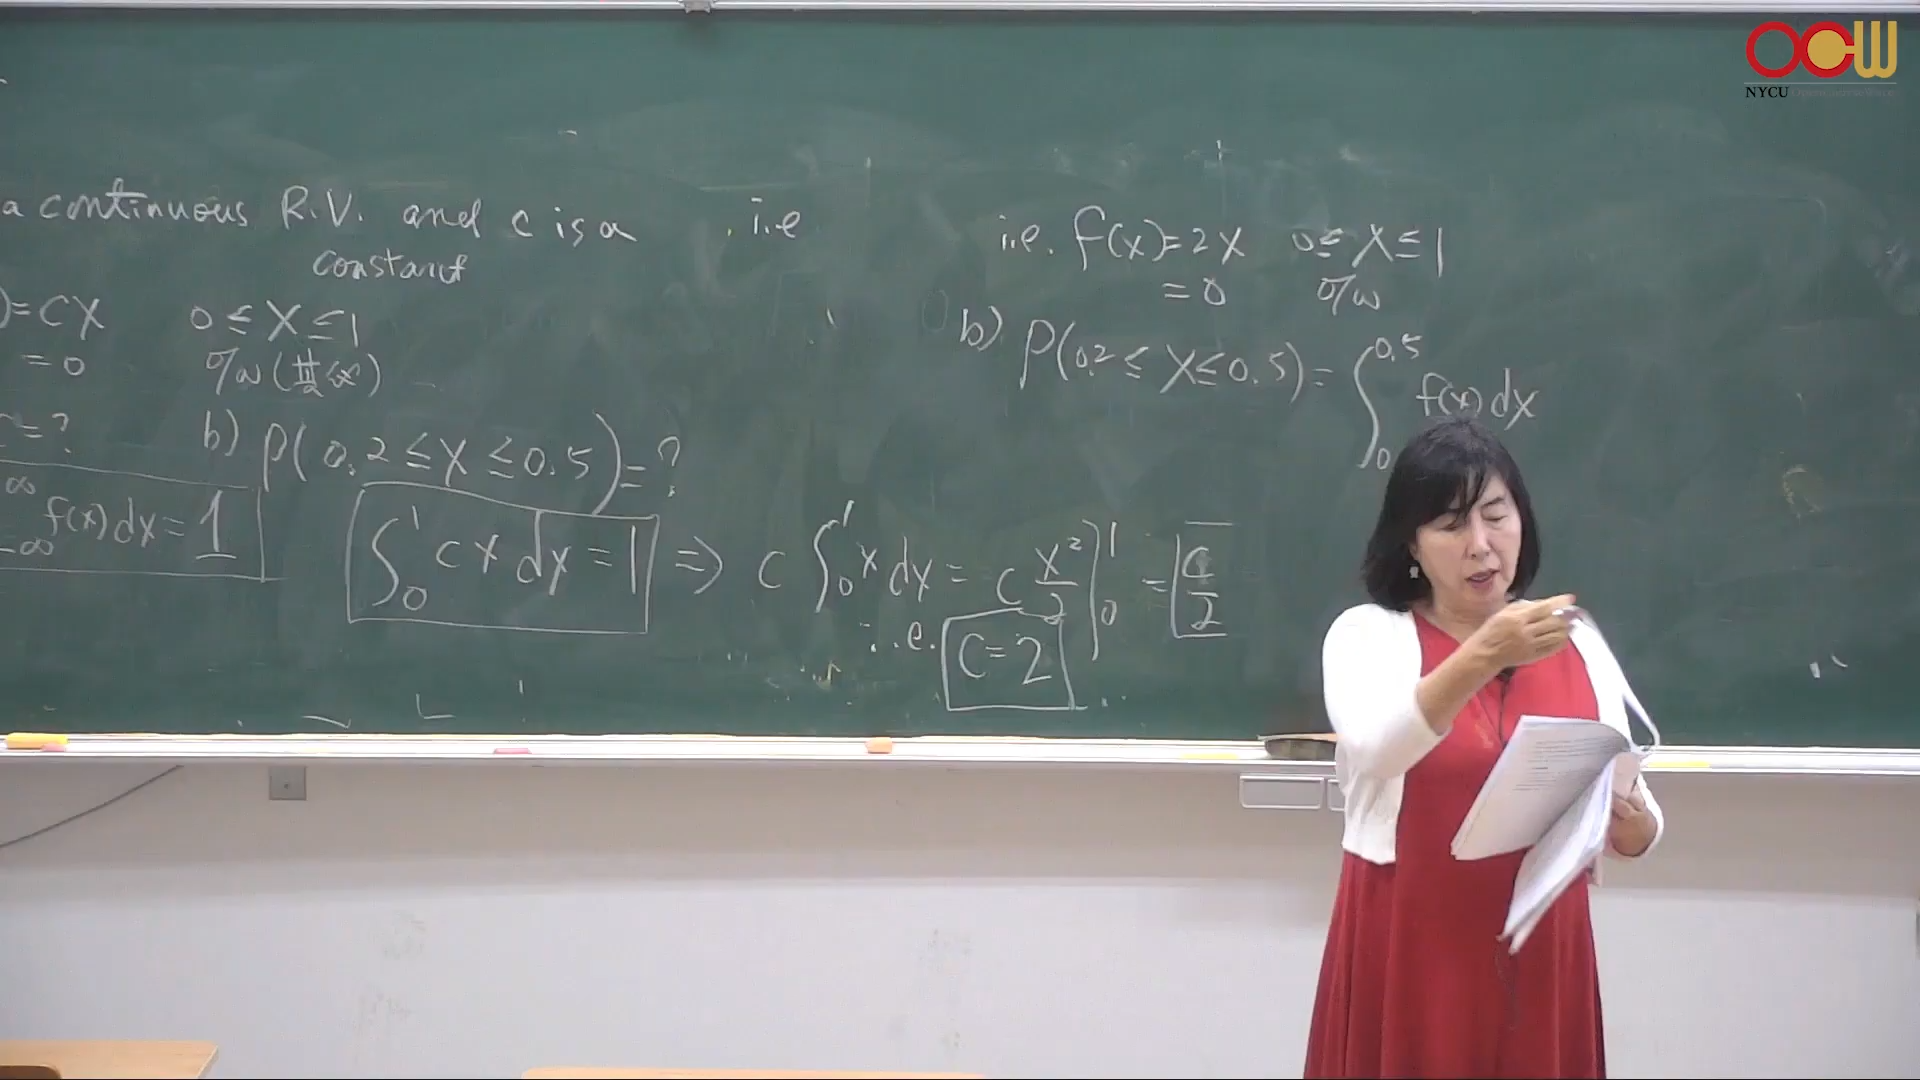 OCW
NYCU OpenCourseWare
a continuous R.V. and c is a i.e
constant
)= CX 0 ≤ X ≤ 1
= 0 o/w (其他)
C = ? b) P( 0.2 ≤ X ≤ 0.5 ) = ?
∫_{-∞}^{∞} f(x) dx = 1
∫_0^1 c x dx = 1 ⇒ c ∫_0^1 x dx = c x²/2 |_0^1 = c/2
i.e. C = 2
i.e. f(x) = 2X 0 ≤ X ≤ 1
= 0 o/w
b) P(0.2 ≤ X ≤ 0.5) = ∫_0^{0.5} f(x) dx